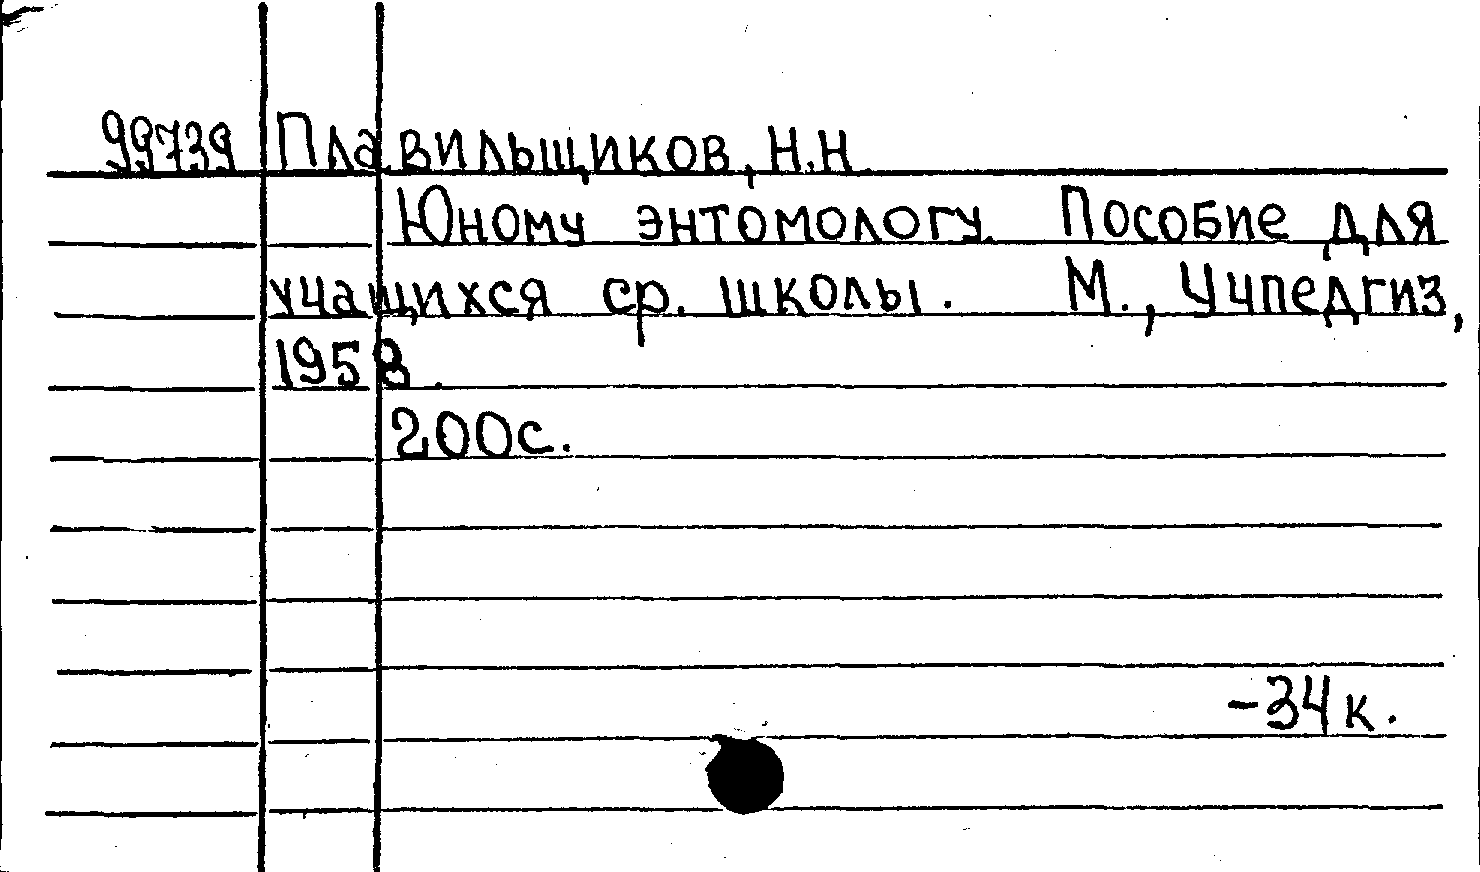 99739 Плавильщиков, Н.Н.
Юному энтомологу. Пособие для
учащихся ср. школы. М., Учпедгиз,
1958.
200с.
-34к.